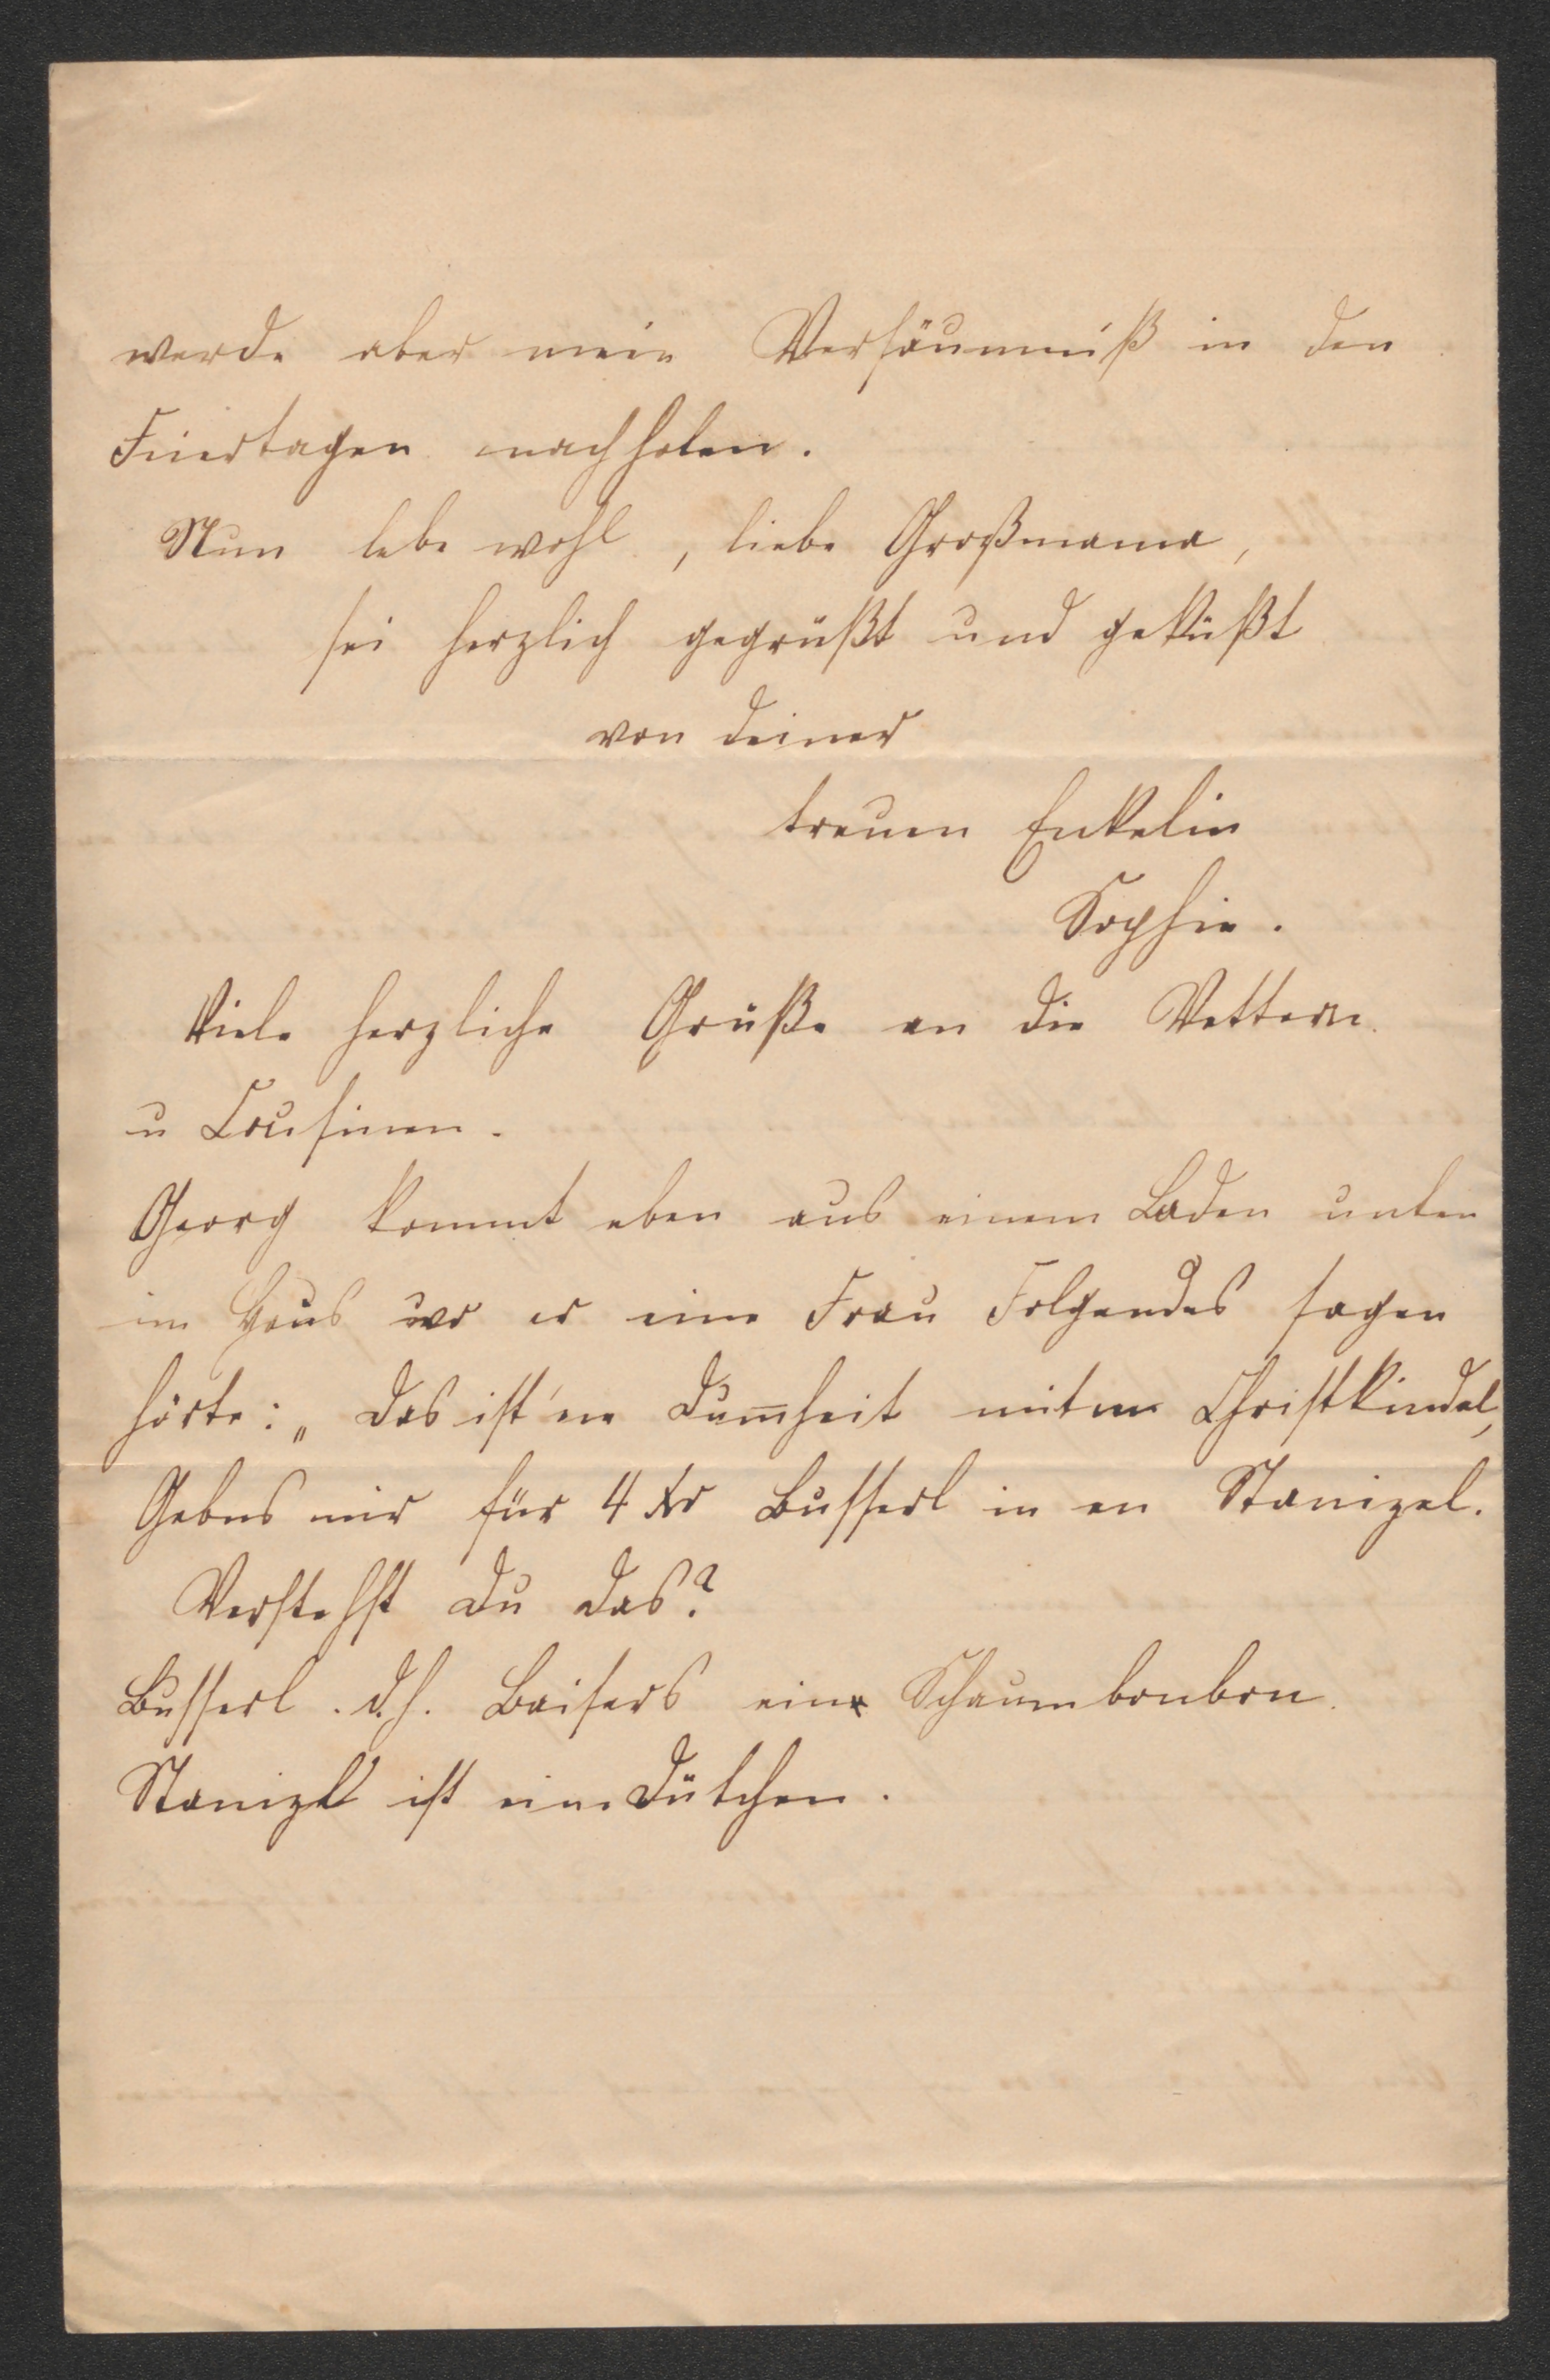 werde aber mein Versäumniß in den
Feiertagen nachholen.
Nun lebe wohl, liebe Großmama,
sei herzlich gegrüßt und geküßt
von deiner
treuen Enkelin
Sophie.
Viele herzliche Grüße an die Vettern
u Cousinen.
Georg kommt eben aus einem Laden unten
im Haus wo er eine Frau Folgendes sagen
hörte: „Das ist 'ne Dum̅heit mitm Christkindel,
Gebns mir für 4 Xr Busserl in en Stanizel.
Verstehst du das?
Busserl. d.h. Baisers ein Schaumbonbon.
Stanizl ist ein Dütchen.